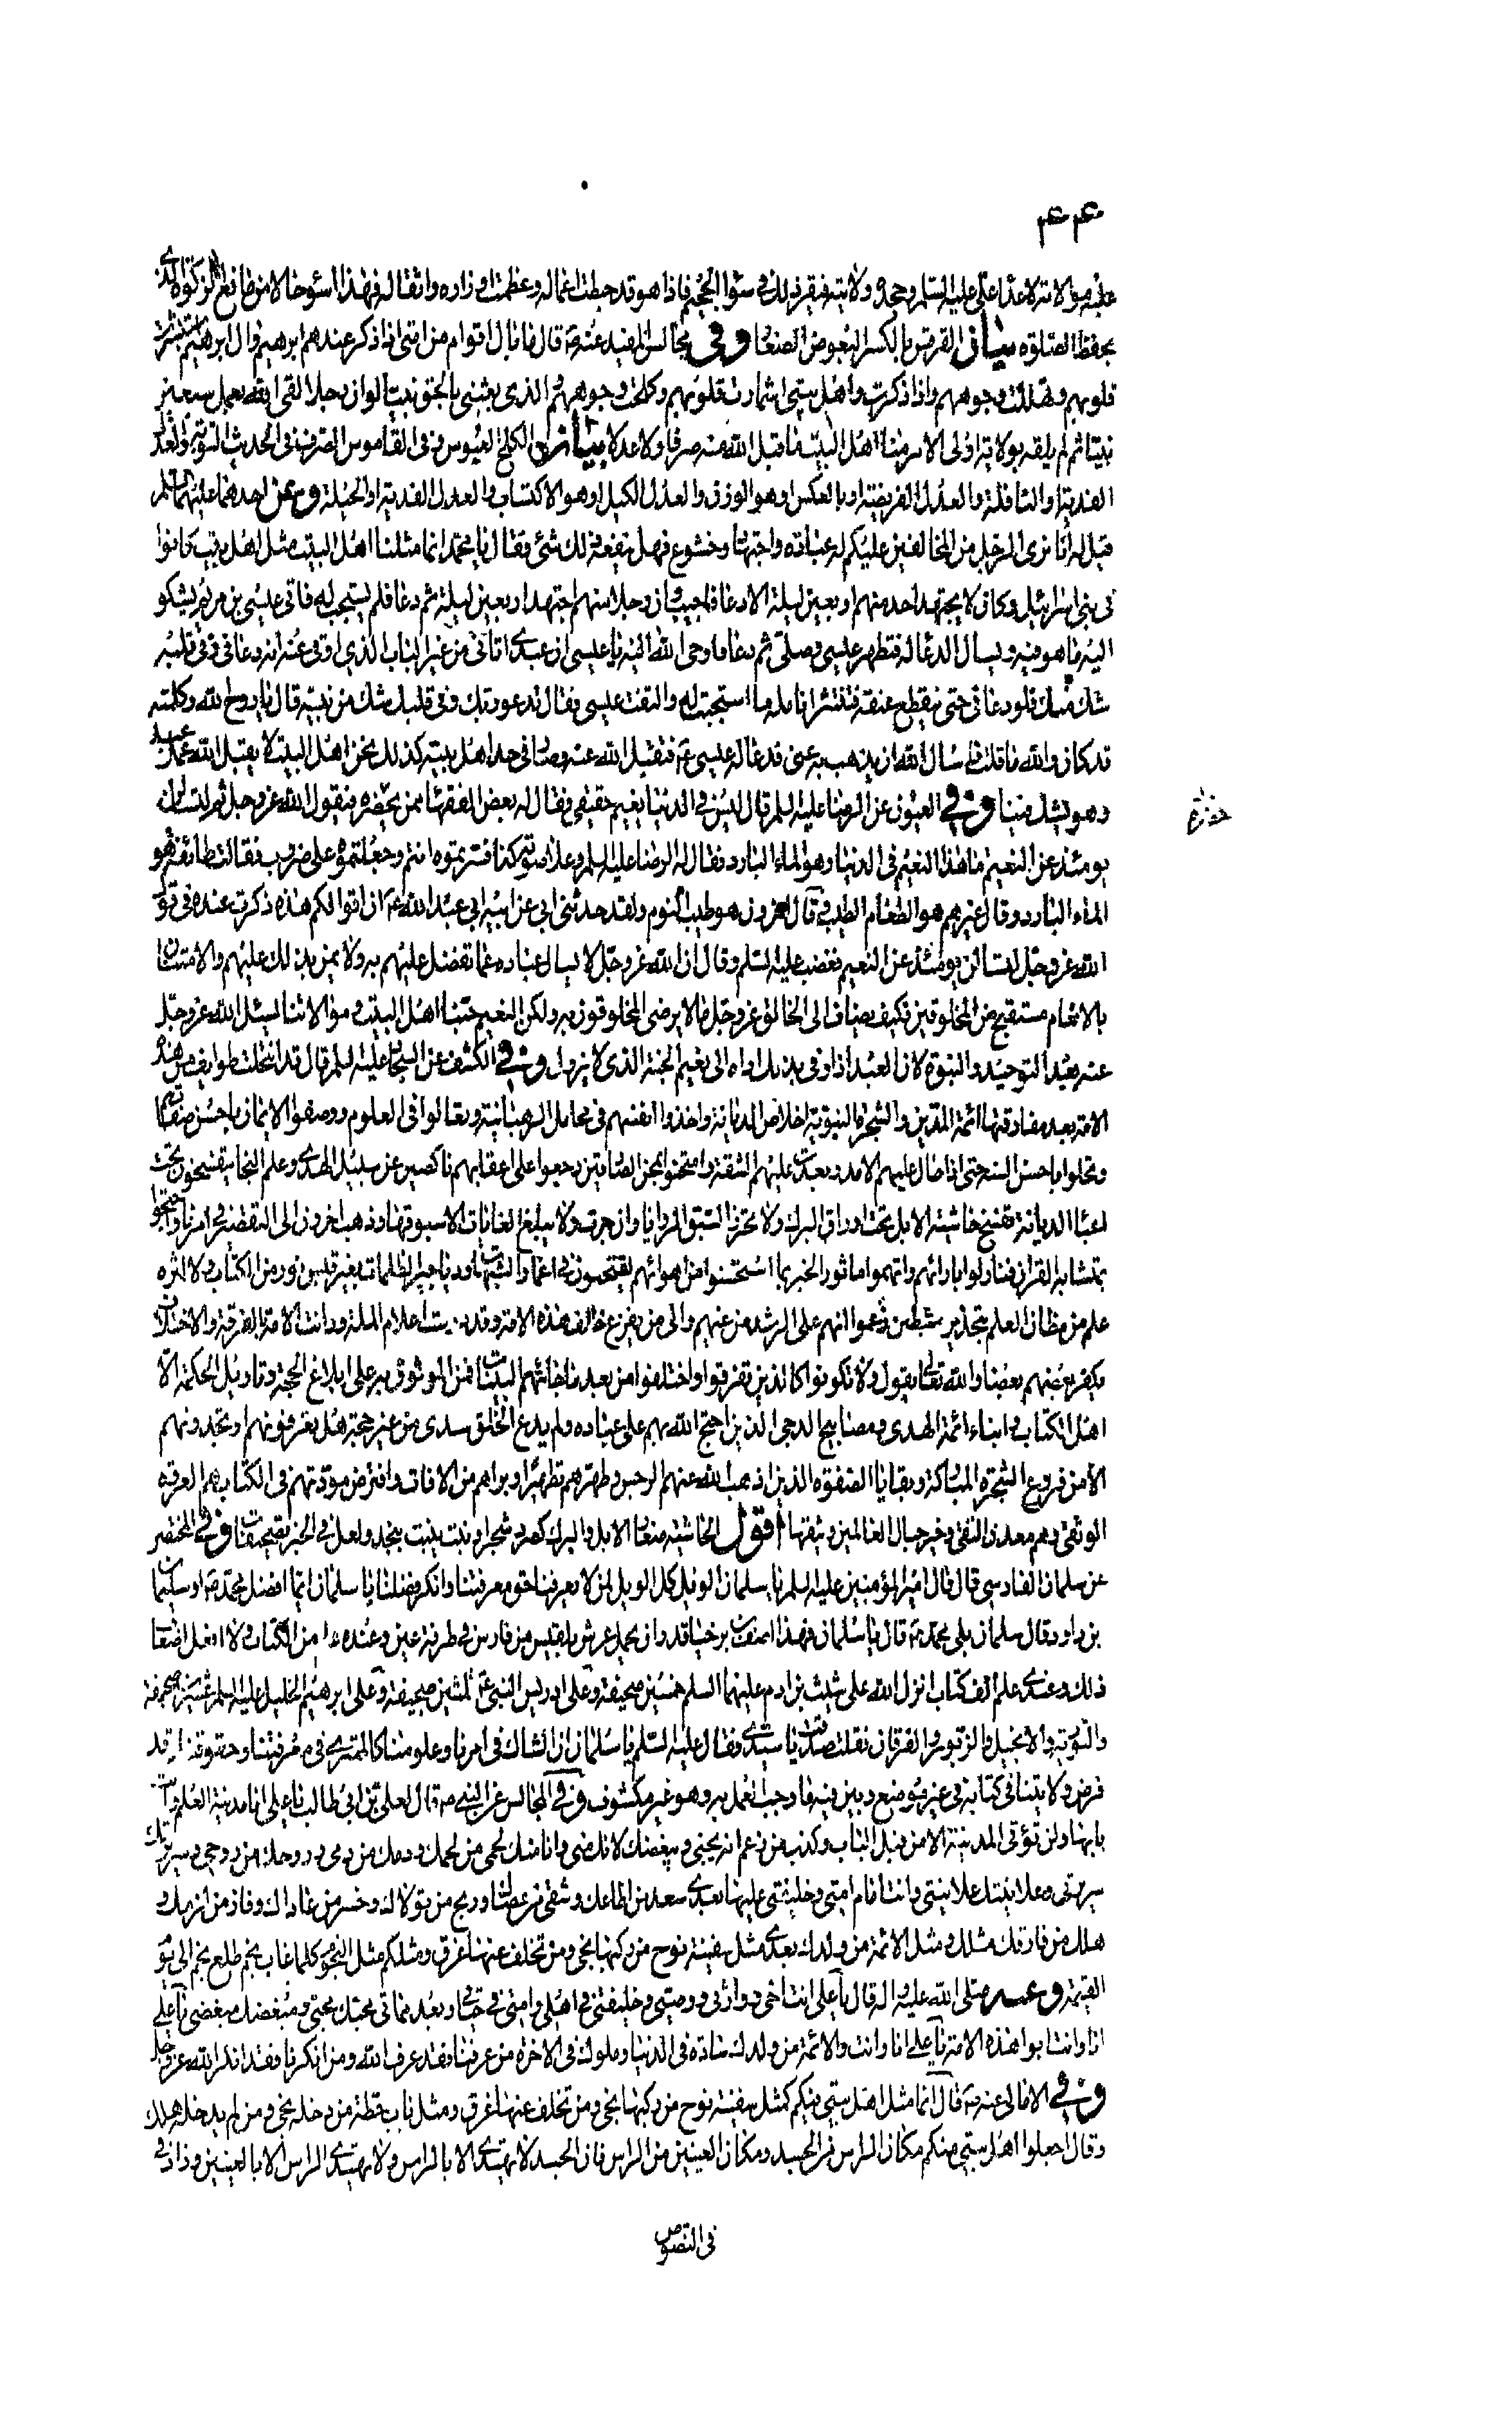 ۴۴
عليه موالاته لاعداء علي عليه السلم وجحده ولايته فيقر ذلك في سواء الجحيم فاذا هو قد حبطت اعماله وعظمت اوزاره واثقاله فهذا اسوء حالا من مانع الزكوة الذي
يحفظ الصلوة بيان القرقس بالكسر البعوض الصغار وفي مجالس المفيد عنه ص قال ما بال اقوام من امتي اذا ذكر عندهم ابرهيم وال ابرهيم استبشرت
قلوبهم وتهللت وجوههم واذا ذكرت واهل بيتي اشمازت قلوبهم وكلحت وجوههم والذي بعثني بالحق نبيا لو ان رجلا لقي الله بعمل سبعين
نبيا ثم لم يلقه بولاية اولى الامر منا اهل البيت ما قبل الله منه صرفا ولا عدلا بيان الكلح العبوس وفي القاموس الصرف في الحديث التوبة والعدل
الفدية او النافلة والعدل الفريضة او بالعكس او هو الوزن والعدل الكيل او هو الاكتساب والعدل الفدية او الحيلة وعن احدهما عليهما السلم
قيل له انا نرى الرجل من المخالفين عليكم له عبادة واجتهاد وخشوع فهل ينفعه ذلك شئ فقال يا محمد انما مثلنا اهل البيت مثل اهل بيت كانوا
في بني اسرائيل وكان لا يجتهد احد منهم اربعين ليلة الا دعا فاجيب وان رجلا منهم اجتهد اربعين ليلة ثم دعا فلم يستجب له فاتى عيسى بن مريم يشكو
اليه ما هو فيه ويسال الدعاء له فتطهر عيسى وصلى ثم دعا فاوحى الله اليه يا عيسى ان عبدي اتاني من غير الباب الذي اوتى منه انه دعاني وفي قلبه
شك منك فلو دعاني حتى ينقطع عنقه وتنتثر انامله ما استجبت له والتفت عيسى فقال تدعو ربك وفي قلبك شك من نبيه قال يا روح الله وكلمته
قد كان والله ما قلت فاسال الله ان يذهب به عني فدعا له عيسى ع فتقبل الله منه وصار في حد اهل بيته كذلك نحن اهل البيت لا يقبل الله عمل عبد
وهو يشك فينا وفي العيون عن الرضا عليه السلم قال ليس في الدنيا نعيم حقيقي فقال له بعض الفقهاء ممن يحضره فيقول الله عز وجل ثم لتسالن
يومئذ عن النعيم ما هذا النعيم في الدنيا وهو الماء البارد فقال له الرضا عليه السلم وعلا صوته كذا فسرتموه انتم وجعلتموه على ضروب فقالت طائفة هو
الماء البارد وقال غيرهم هو الطعام الطيب وقال اخرون هو طيب النوم ولقد حدثني ابي عن ابيه ابي عبد الله ع ان اقوالكم هذه ذكرت عنده في قول
الله عز وجل لتسالن يومئذ عن النعيم فغضب عليه السلم وقال ان الله عز وجل لا يسال عباده عما تفضل عليهم به ولا يمن بذلك عليهم والامتنان
بالانعام مستقبح من المخلوقين فكيف يضاف الى الخالق عز وجل ما لا يرضى المخلوقون به ولكن النعيم حبنا اهل البيت وموالاتنا يسئل الله عز وجل
عنه بعد التوحيد والنبوة لان العبد اذا وفى بذلك اداه الى نعيم الجنة الذي لا يزول وفي الكشف عن السجاد عليه السلم قال قد انتحلت طوايف من هذه
الامة بعد مفارقتها ائمة الدين والشجرة النبوية اخلاص الديانة واخذوا انفسهم في مخايل الرهبانية وتعالوا في العلوم ووصفوا الايمان باحسن صفاتهم
وتحلوا باحسن السنة حتى اذا طال عليهم الامد وبعدت عليهم الشقة وامتحنوا بمحن الصادقين رجعوا على اعقابهم ناكصين عن سبيل الهدى وعلم النجاة يتفسخون تحت
اعباء الديانة تفسخ حاشية الابل تحت اوراق البرك ولا تحرز السبق الروايا وان جرت ولا يبلغ الغايات الا سبوقها وذهب اخرون الى التقصير في امرنا واحتجوا
بمتشابه القران فتاولوا بارائهم واتهموا ماثور الخبر بما استحسنوا من اهوائهم يقتحمون في اغمار الشبهات ودياجير الظلمات بغير قبس نور من الكتاب ولا اثره
علم من مظان العلم بتحذير مثبطين زعموا انهم على الرشد من غيهم والى من يفزع خالف هذه الامة وقد درست اعلام الملة ودانت الامة بالفرقة والاختلاف
يكفر بعضهم بعضا والله تعالى يقول ولا تكونوا كالذين تفرقوا واختلفوا من بعد ما جائهم البينات فمن الموثوق به على ابلاغ الحجة وتاويل الحكمة الا
اهل الكتاب وابناء ائمة الهدى ومصابيح الدجى الذين احتج الله بهم على عباده ولم يدع الخلق سدى من غير حجة هل تعرفونهم او تجدونهم
الا من فروع الشجرة المباركة وبقايا الصفوة الذين اذهب الله عنهم الرجس وطهرهم تطهيرا وبراهم من الافات وافترض مودتهم في الكتاب هم العروة
الوثقى وهم معدن التقى وخير حبال العالمين وثيقها اقول الحاشية صغار الابل والبرك كصرد شجر او نبت ينبت بنجد ولعل في الخبر تصحيفات وفي المختصر
عن سلمان الفارسي قال قال امير المؤمنين عليه السلم يا سلمان الويل كل الويل لمن لا يعرفنا حق معرفتنا وانكر فضلنا يا سلمان ايما افضل محمد ص او سليمان
بن داود قال سلمان بلى محمد ص قال يا سلمان فهذا اصف بن برخيا قدر ان يحمل عرش بلقيس من فارس في طرفة عين وعنده علم من الكتاب ولا افعل اضعاف
ذلك وعندي علم الف كتاب انزل الله على شيث بن ادم عليهما السلم خمسين صحيفة وعلى ادريس النبي ع ثلثين صحيفة وعلى ابرهيم الخليل عليه السلم عشرين صحيفة
والتورية والانجيل والزبور والفرقان فقلت صدقت يا سيدي فقال عليه السلم يا سلمان ان الشاك في امرنا وعلومنا كالممتري في معرفتنا وحقوقنا وقد
فرض ولايتنا في كتابه في غير موضع وبين فيه ما وجب العمل به وهو غير مكشوف وفي المجالس عن النبي ص قال لعلي بن ابي طالب يا علي انا مدينة العلم وانت
بابها ولن تؤتى المدينة الا من قبل الباب وكذب من زعم انه يحبني ويبغضك لانك مني وانا منك لحمك من لحمي ودمك من دمي وروحك من روحي وسريرتك
سريرتي وعلانيتك علانيتي وانت امام امتي وخليفتي عليها بعدي سعد من اطاعك وشقي من عصاك وربح من تولاك وخسر من عاداك وفاز من لزمك و
هلك من فارقك مثلك ومثل الائمة من ولدك بعدي مثل سفينة نوح من ركبها نجى ومن تخلف عنها غرق ومثلكم مثل النجوم كلما غاب نجم طلع نجم الى يوم
القيمة وعنه صلى الله عليه واله قال يا علي انت اخي ووارثي ووصيي وخليفتي في اهلي وامتي في حيوتي وبعد مماتي محبك محبي ومبغضك مبغضي يا علي
انا وانت ابوا هذه الامة يا علي انا وانت والائمة من ولدك سادة في الدنيا وملوك في الاخرة من عرفنا فقد عرف الله ومن انكرنا فقد انكر الله عز وجل
وفي الامالي عنه ص قال انما مثل اهل بيتي فيكم كمثل سفينة نوح من ركبها نجى ومن تخلف عنها غرق ومثل باب حطة من دخله نجى ومن لم يدخله هلك
وقال اجعلوا اهل بيتي منكم مكان الراس من الجسد ومكان العينين من الراس فان الجسد لا يهتدي الا بالراس ولا يهتدي الراس الا بالعينين وزاد في
في النصوص